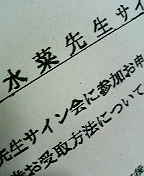 水菜先生サイ
先生サイン会に参加お申
お受取方法について